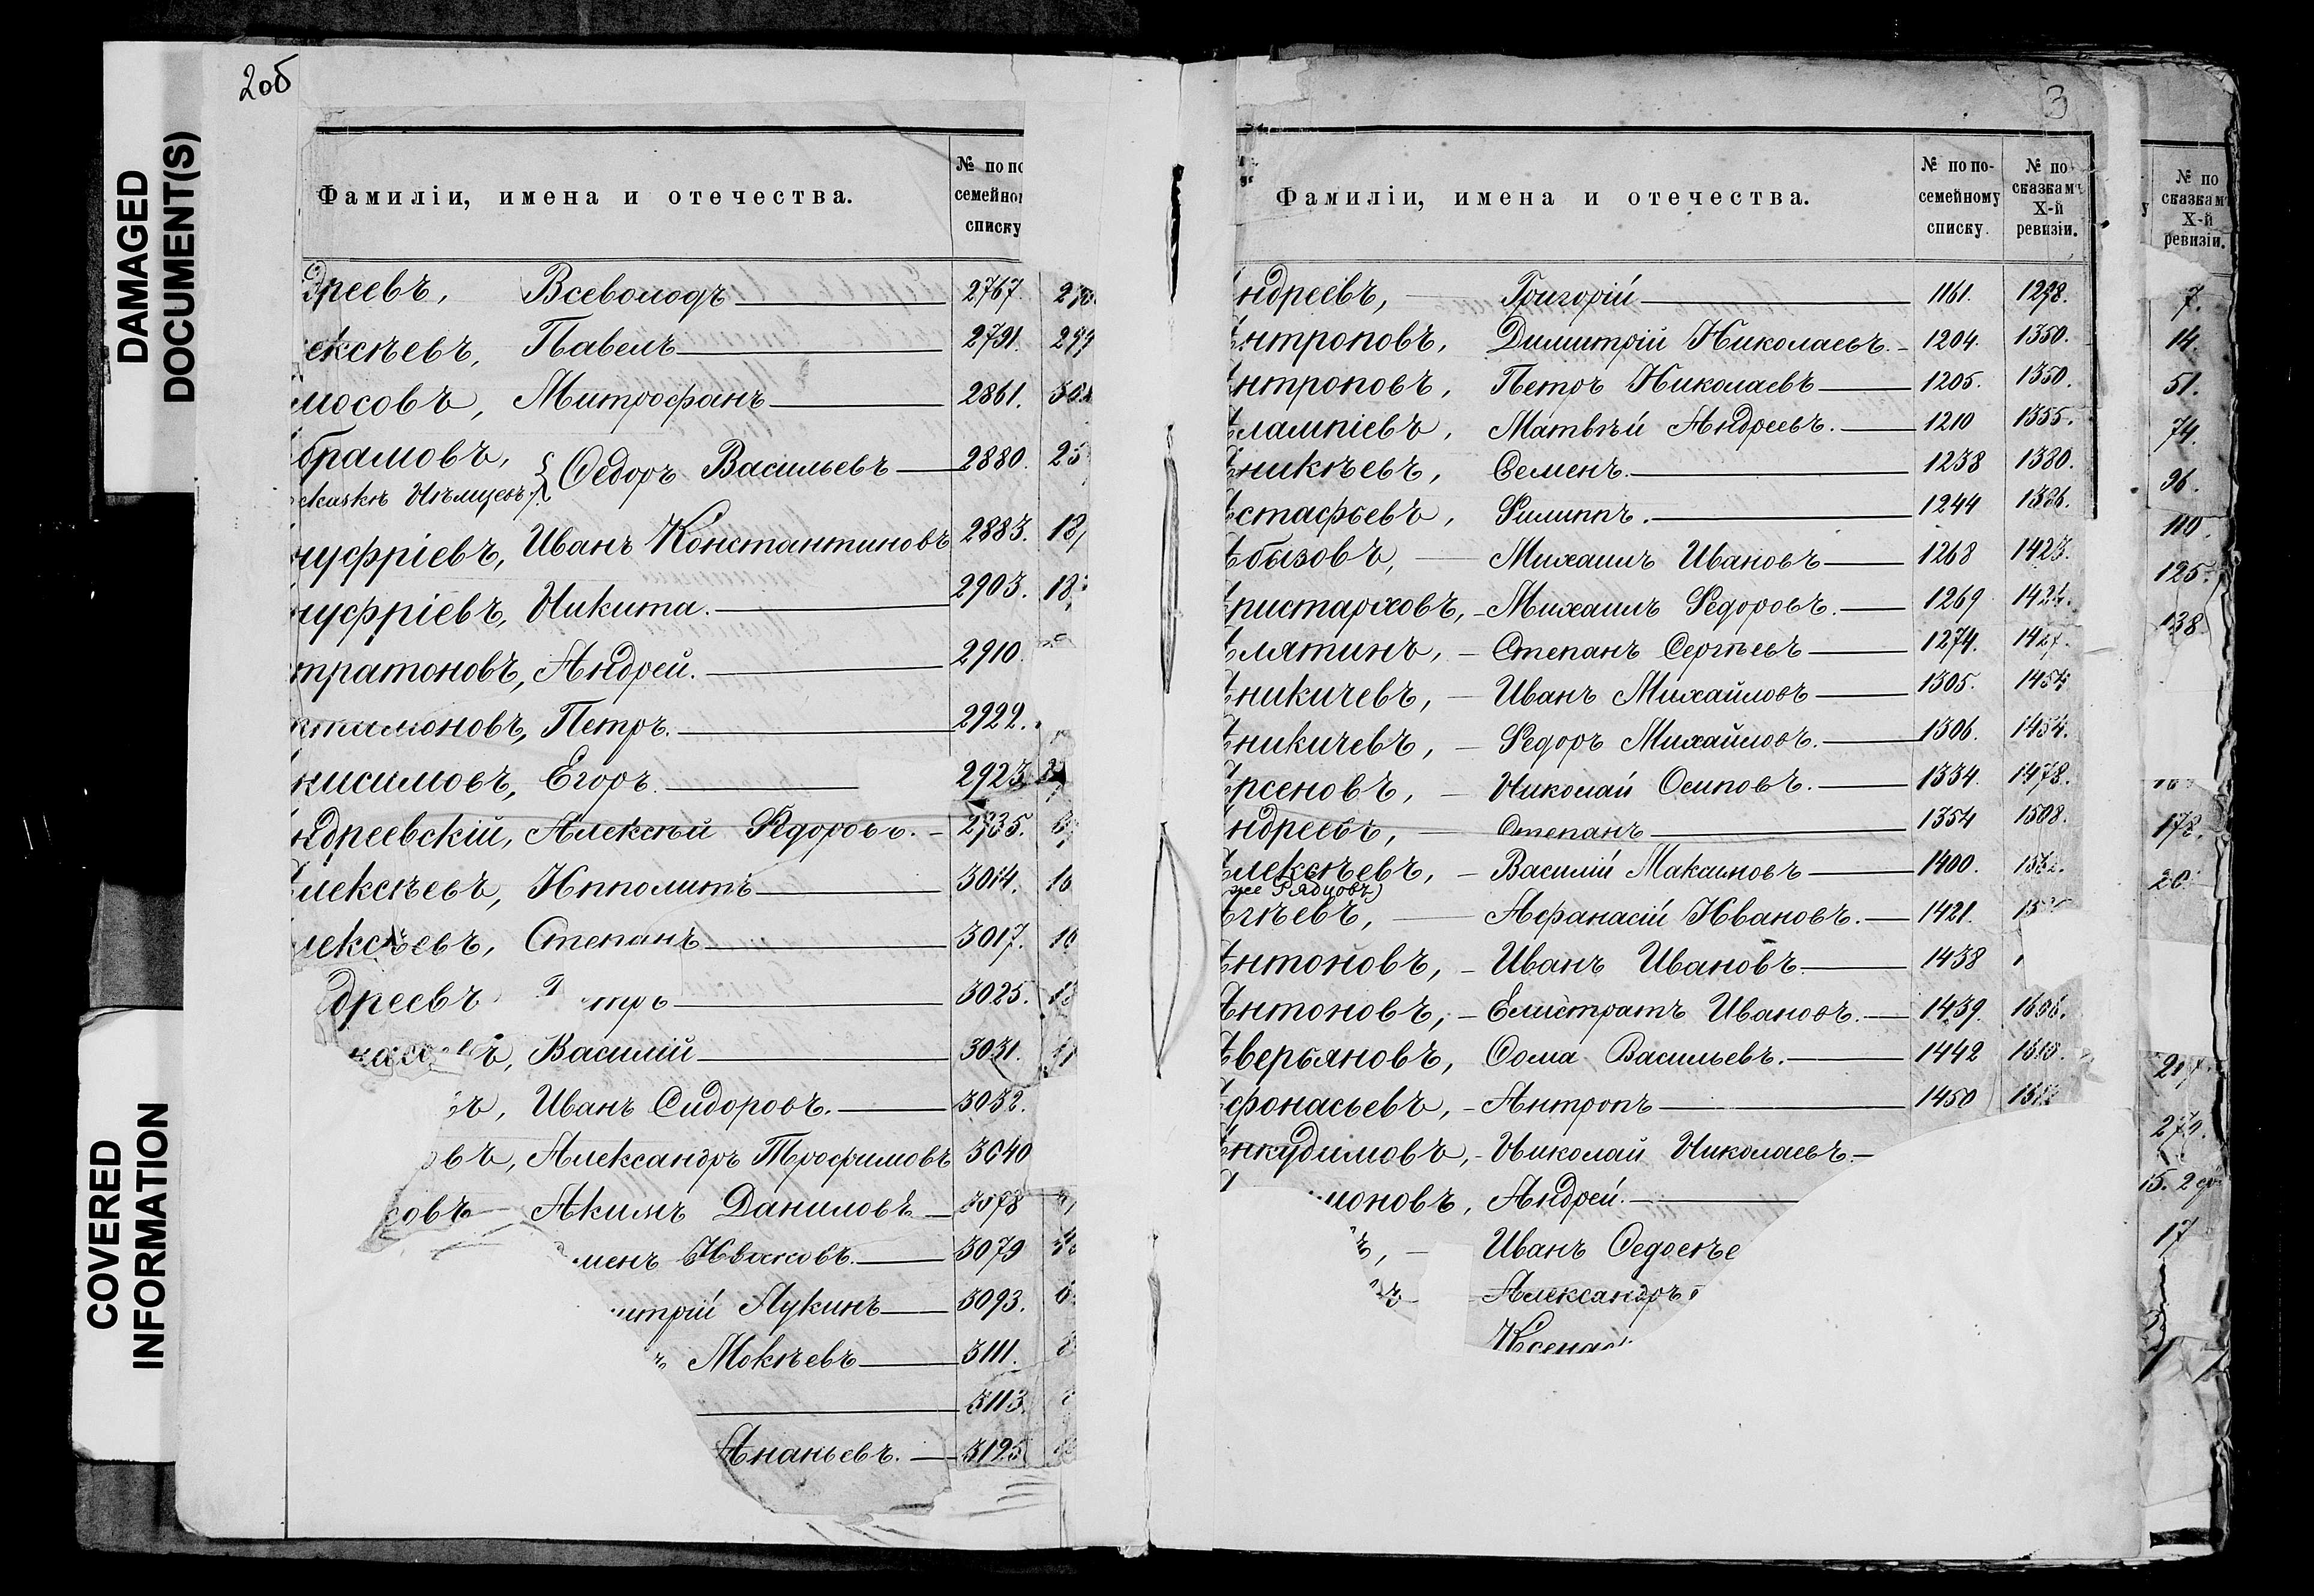 DAMAGED
DOCUMENT(S)
COVERED
INFORMATION
2об
Фамиліи, имена и отечества.
№ по по
семейно
списку
дреевъ, Всеволодъ 2767.
ексѣевъ, Павелъ 2791. 299
мосовъ, Митрофанъ 2861.
брамовъ, Ѳедоръ Васильевъ 2880. 25
сказкѣ Нѣмцевъ)
нуфріевъ, Иванъ Константиновъ 2883. 18
нуфріевъ, Никита. 2903. 18
тратоновъ, Андрей. 2910.
ктамоновъ, Петръ. 2922.
нисимовъ, Егоръ. 2923
ндреевскій, Алексѣй Федоровъ. 2935.
лексѣевъ, Ипполитъ 3014. 16
лексѣевъ, Степанъ 3017. 16
дреевъ тръ 3025.
ъ, Василій 3031.
ъ, Иванъ Сидоровъ. 3032.
овъ, Александръ Трофимовъ 3040
совъ Акимъ Даниловъ 3078
менъ Ивановъ. 3079
итрій Лукинъ 3093.
ъ Мокѣевъ 3111.
3113.
Ананьевъ. 3125
3
Фамиліи, имена и отечества.
№ по по-
семейному
списку.
№ по
сказкамъ
X-й
ревизіи.
ндреевъ, Григорій 1161. 1298.
нтроповъ, Димитрій Николаевъ. 1204. 1350.
нтроповъ, Петръ Николаевъ 1205. 1350.
лампіевъ, Матвѣй Андреевъ. 1210 1355.
никѣевъ, Семенъ. 1238 1380.
стафьевъ, Филиппъ. 1244 1386.
бызовъ, Михаилъ Ивановъ 1268 1423.
ристарховъ, Михаилъ Федоровъ. 1269 1424.
лятинъ, Степанъ Сергѣевъ 1274. 1427.
никичевъ, Иванъ Михайловъ 1305. 1454
никичевъ, Федоръ Михайловъ. 1306. 1454.
рсеновъ, Николай Осиповъ. 1334. 1478.
ндреевъ, Степанъ 1354 1508.
лексѣевъ, Василій Максимовъ 1400.
же Рябцовъ)
гѣевъ, Афанасій Ивановъ. 1421.
нтоновъ, Иванъ Ивановъ 1438
нтоновъ, Елистратъ Ивановъ. 1439. 1606.
верьяновъ, Ѳома Васильевъ. 1442
фонасьевъ, Антропъ 1450
нкудимовъ, Николай Николаевъ
моновъ, Андрей.
ъ, Иванъ Ѳедосѣе
Александръ
Ксеноф
№ по
сказкам
X-й
ревизіи.
7.
14.
51.
74.
96.
110.
125.
138.
178.
20
27
15. 2
17